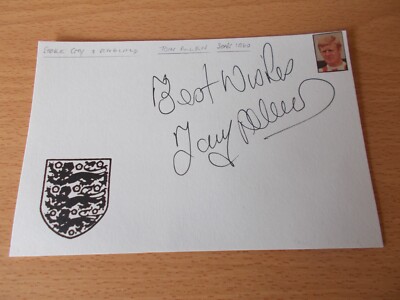 STOKE CITY & ENGLAND TONY ALLEN
Best Wishes
Tony Allen